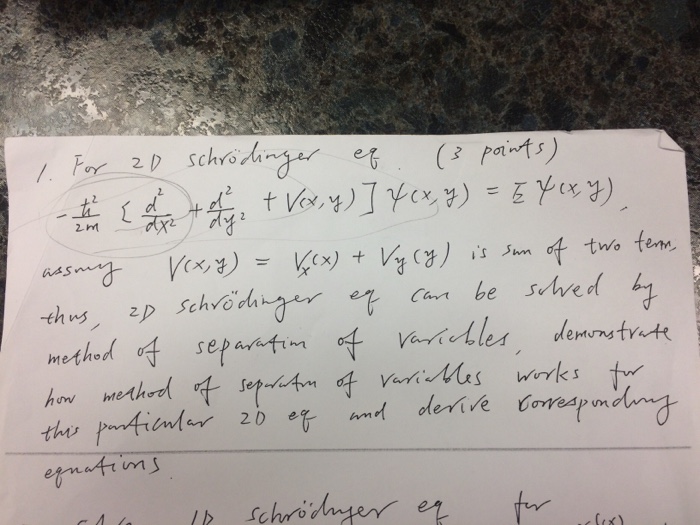 1. For 2D schrödinger eq. (3 points)
-ħ²/2m [d²/dx² + d²/dy² + V(x,y)] ψ(x,y) = E ψ(x,y).
assmy V(x,y) = Vx(x) + Vy(y) is sum of two term,
thus, 2D schrödinger eq can be solved by
method of separation of variables, demonstrate
how method of separatn of variables works for
this particular 2D eq and derive corresponding
equations.
1D schrödinger eq for